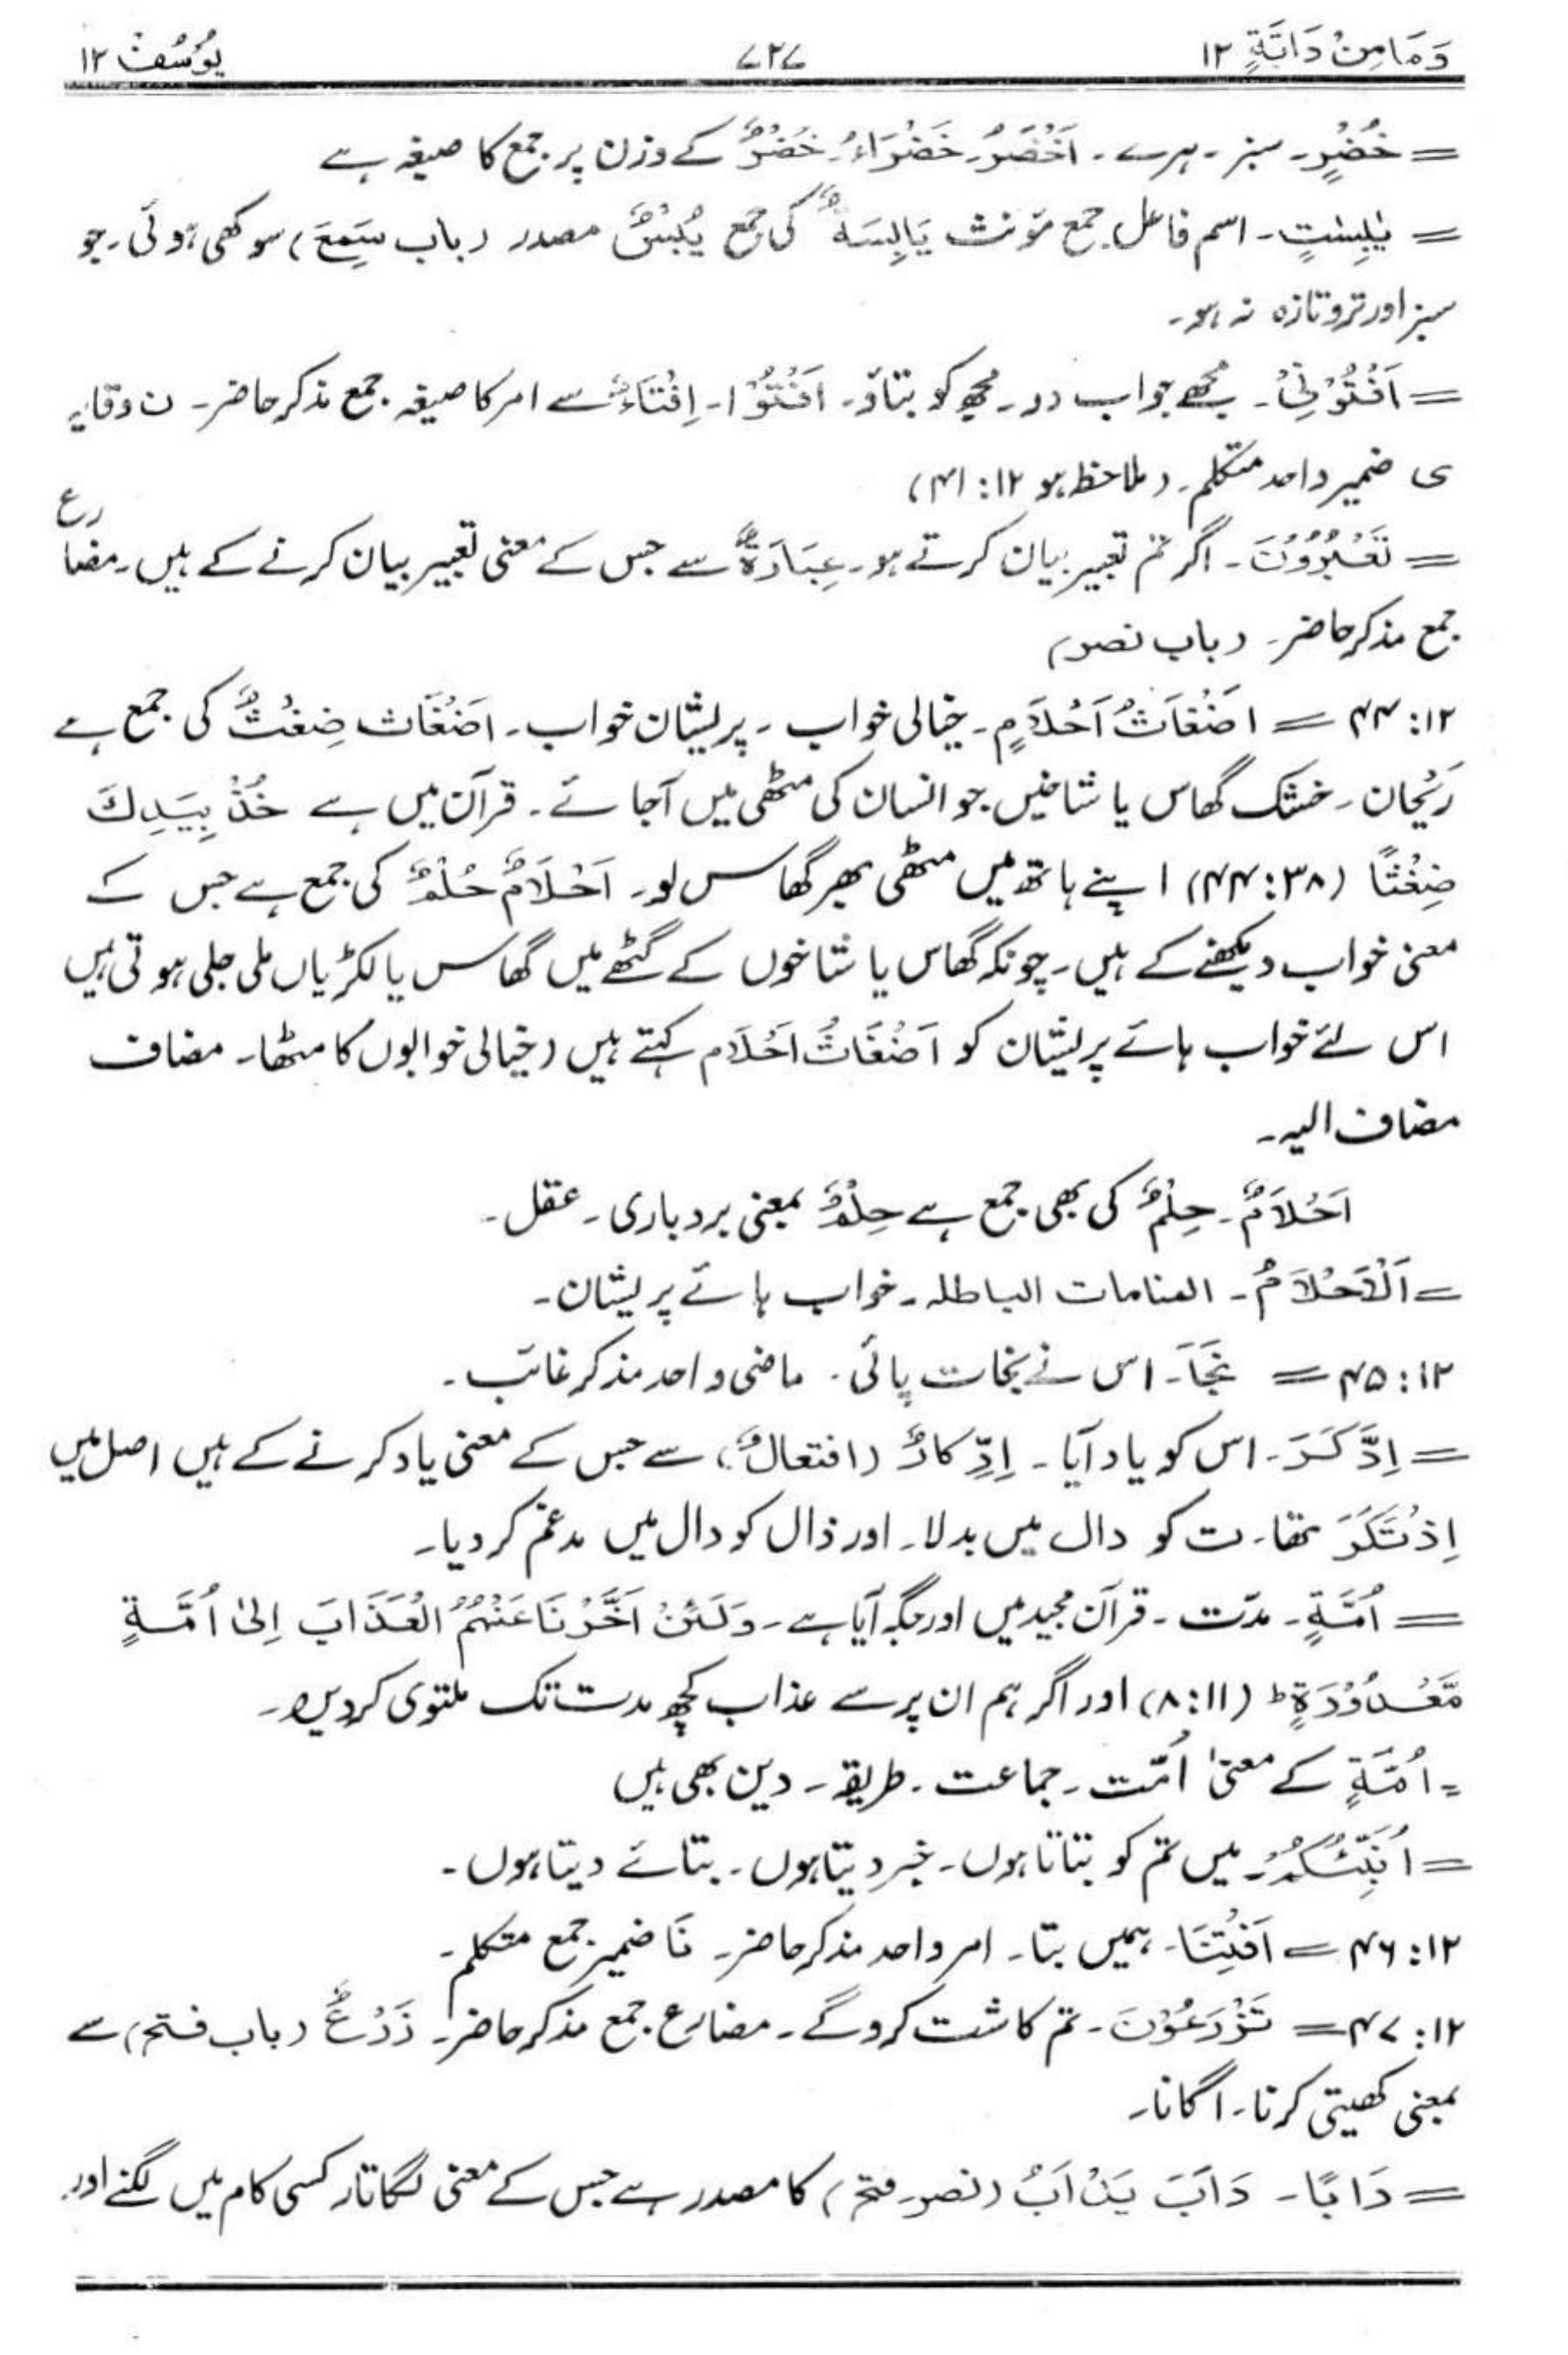 وَمَا مِنْ دَابَّةٍ ۱۲ ۷۲۷ یُوسُف ۱۲
= خُضْرٍ۔ سبز۔ ہرے۔ اَخْضَرُ۔ خَضْرَاءُ۔ خُضْرٌ کے وزن پر جمع کا صیغہ ہے
= یٰبِسٰتٍ۔ اسم فاعل جمع مؤنث یَابِسَةٌ کی جمع یُبْسٌ مصدر (باب سَمِعَ) سوکھی ہوئی۔ جو
سبز اور تروتازہ نہ ہو۔
= اَفْتُوْنِیْ۔ مجھے جواب دو۔ مجھ کو بتاؤ۔ اَفْتُوْا۔ اِفْتَاءٌ سے امر کا صیغہ جمع مذکر حاضر۔ ن وقایہ
ی ضمیر واحد متکلم۔ (ملاحظہ ہو ۱۲: ۴۱)
= تَعْبُرُوْنَ۔ اگر تم تعبیر بیان کرتے ہو۔ عِبَارَةٌ سے جس کے معنی تعبیر بیان کرنے کے ہیں۔ مضارع
جمع مذکر حاضر۔ (باب نصر)
۱۲: ۴۴ = اَضْغَاثُ اَحْلَامٍ۔ خیالی خواب۔ پریشان خواب۔ اَضْغَاث ضِغْثٌ کی جمع ہے
رَیْحان۔ خشک گھاس یا شاخیں جو انسان کی مٹھی میں آجائے۔ قرآن میں ہے خُذْ بِیَدِكَ
ضِغْثًا (۳۸: ۴۴) اپنے ہاتھ میں مٹھی بھر گھاس لو۔ اَحْلَامٌ حُلْمٌ کی جمع ہے جس کے
معنی خواب دیکھنے کے ہیں۔ چونکہ گھاس یا شاخوں کے گٹھے میں گھاس یا لکڑیاں ملی جلی ہوتی ہیں
اس لئے خواب ہائے پریشان کو اَضْغَاثُ اَحْلَام کہتے ہیں (خیالی خوابوں کا مٹھا۔ مضاف
مضاف الیہ۔
اَحْلَامٌ۔ حِلْمٌ کی بھی جمع ہے حِلْمٌ بمعنی بردباری۔ عقل۔
= اَلْاَحْلَامُ۔ المنامات الباطلہ۔ خواب ہائے پریشان۔
۱۲: ۴۵ = نَجَا۔ اس نے نجات پائی۔ ماضی واحد مذکر غائب۔
= اِدَّكَرَ۔ اس کو یاد آیا۔ اِدِّكَارٌ (افتعالٌ) سے جس کے معنی یاد کرنے کے ہیں اصل میں
اِذْتَكَرَ تھا۔ ت کو دال میں بدلا۔ اور ذال کو دال میں مدغم کردیا۔
= اُمَّةٍ۔ مدّت۔ قرآن مجید میں اور جگہ آیا ہے۔ وَلَئِنْ اَخَّرْنَا عَنْهُمُ الْعَذَابَ اِلٰی اُمَّةٍ
مَّعْدُوْدَةٍ ط (۱۱: ۸) اور اگر ہم ان پر سے عذاب کچھ مدت تک ملتوی کردیں۔
= اُمَّةٍ کے معنیٰ اُمّت۔ جماعت۔ طریقہ۔ دین بھی ہیں
= اُنَبِّئُكُمْ۔ میں تم کو بتاتا ہوں۔ خبر دیتا ہوں۔ بتائے دیتا ہوں۔
۱۲: ۴۶ = اَفْتِنَا۔ ہمیں بتا۔ امر واحد مذکر حاضر۔ نَا ضمیر جمع متکلم۔
۱۲: ۴۷ = تَزْرَعُوْنَ۔ تم کاشت کروگے۔ مضارع جمع مذکر حاضر۔ زَرْعٌ (باب فتح) سے
بمعنی کھیتی کرنا۔ اگانا۔
= دَاَبًا۔ دَاَبَ یَدْاَبُ (نصر۔ فتح) کا مصدر ہے جس کے معنی لگاتار کسی کام میں لگنے اور